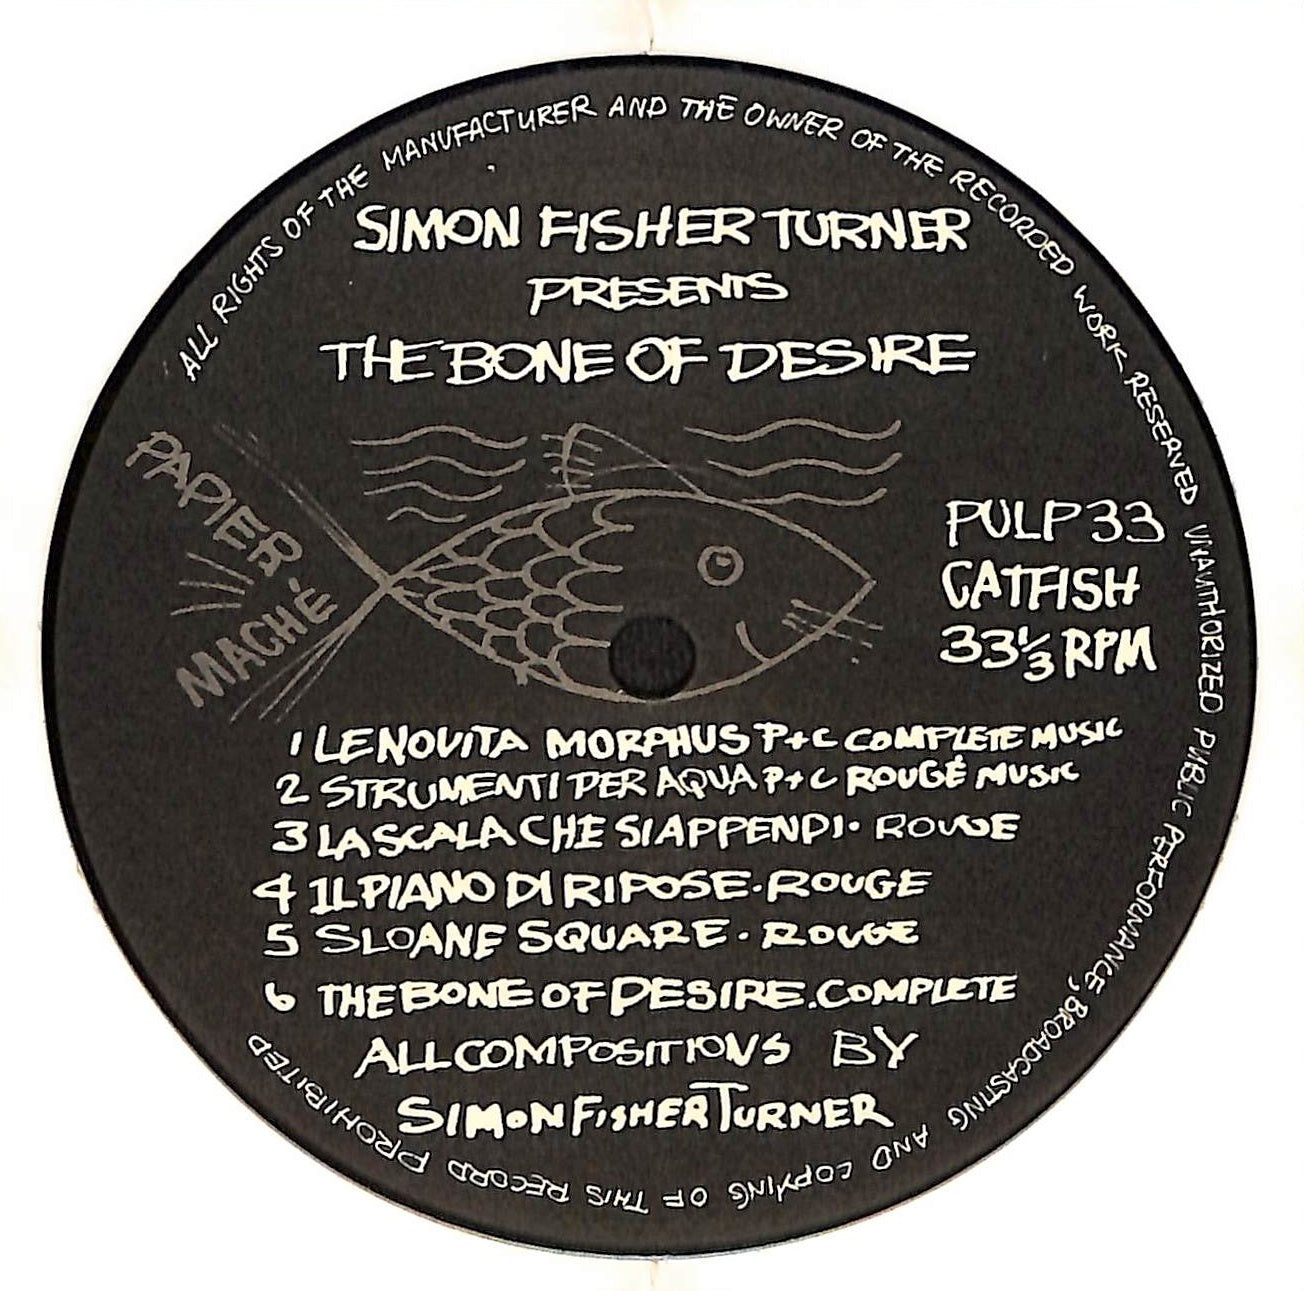 ALL RIGHTS OF THE MANUFACTURER AND THE OWNER OF THE RECORDED WORK RESERVED UNAUTHORIZED PUBLIC PERFORMANCE, BROADCASTING AND COPYING OF THIS RECORD PROHIBITED
SIMON FISHER TURNER
PRESENTS
THE BONE OF DESIRE
PAPIER-
MACHÉ
PULP 33
CATFISH
33 1/3 RPM
1 LENOVITA MORPHUS P+C COMPLETE MUSIC
2 STRUMENTI PER AQUA P+C ROUGÉ MUSIC
3 LA SCALA CHE SIAPPENDI · ROUGE
4 IL PIANO DI RIPOSE · ROUGE
5 SLOANE SQUARE · ROUGE
6 THE BONE OF DESIRE . COMPLETE
ALL COMPOSITIONS BY
SIMON FISHER TURNER